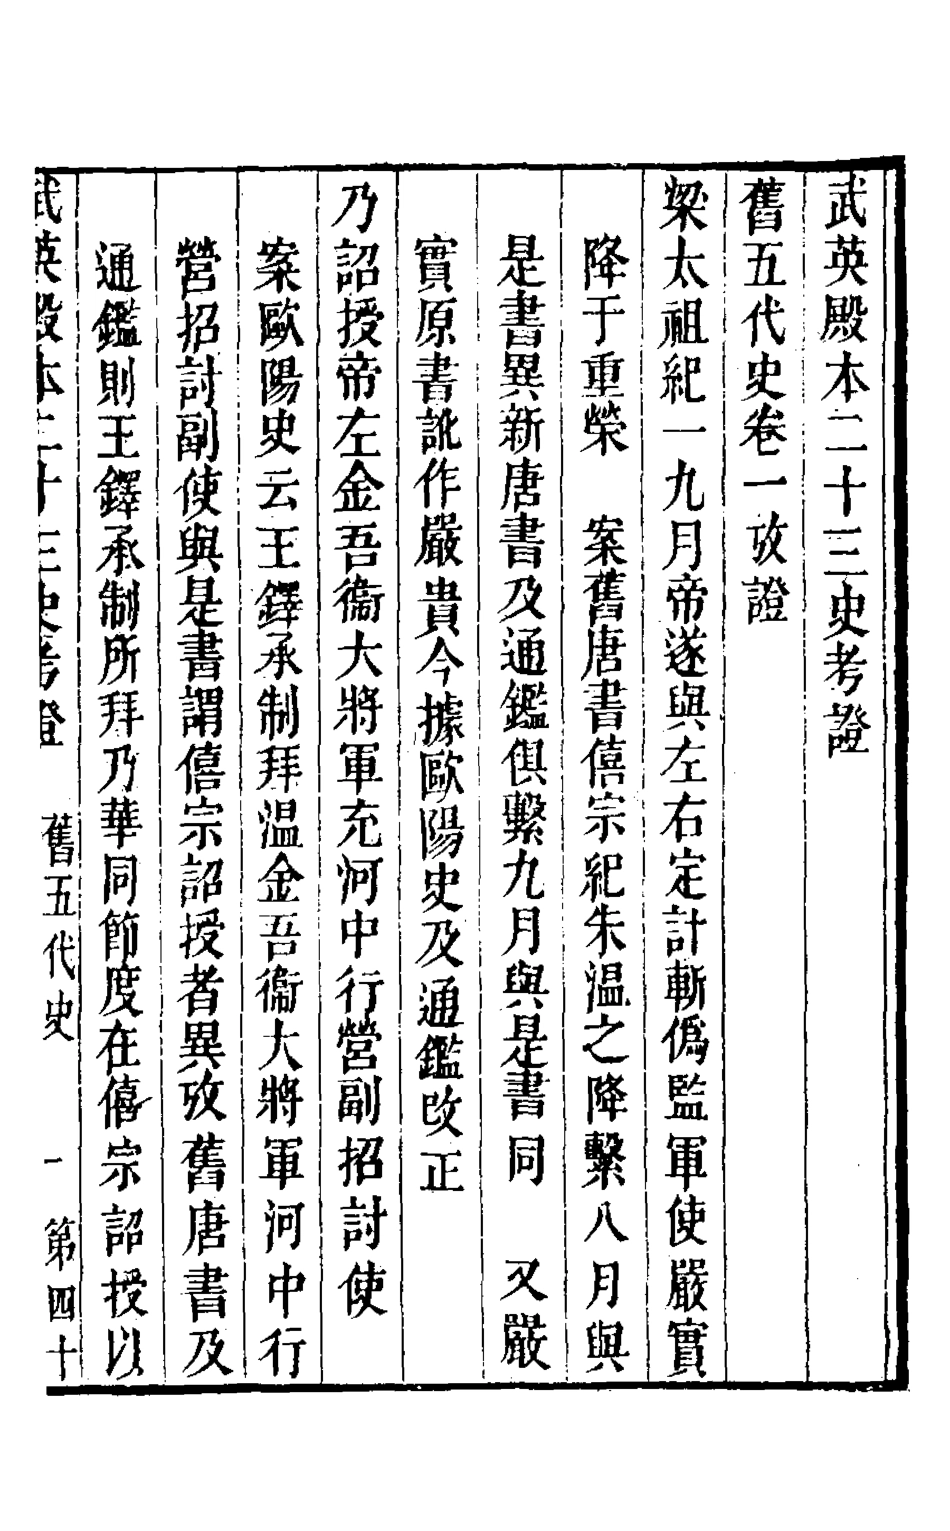 武英殿本二十三史考證
舊五代史卷一攷證
梁太祖紀一九月帝遂與左右定計斬僞監軍使嚴實
降于重榮　案舊唐書僖宗紀朱温之降繫八月與
是書異新唐書及通鑑俱繫九月與是書同　又嚴
實原書訛作嚴貴今據歐陽史及通鑑改正
乃詔授帝左金吾衞大將軍充河中行營副招討使
案歐陽史云王鐸承制拜温金吾衞大將軍河中行
營招討副使與是書謂僖宗詔授者異攷舊唐書及
通鑑則王鐸承制所拜乃華同節度在僖宗詔授以
武英殿本二十三史考證　舊五代史　一　第四十